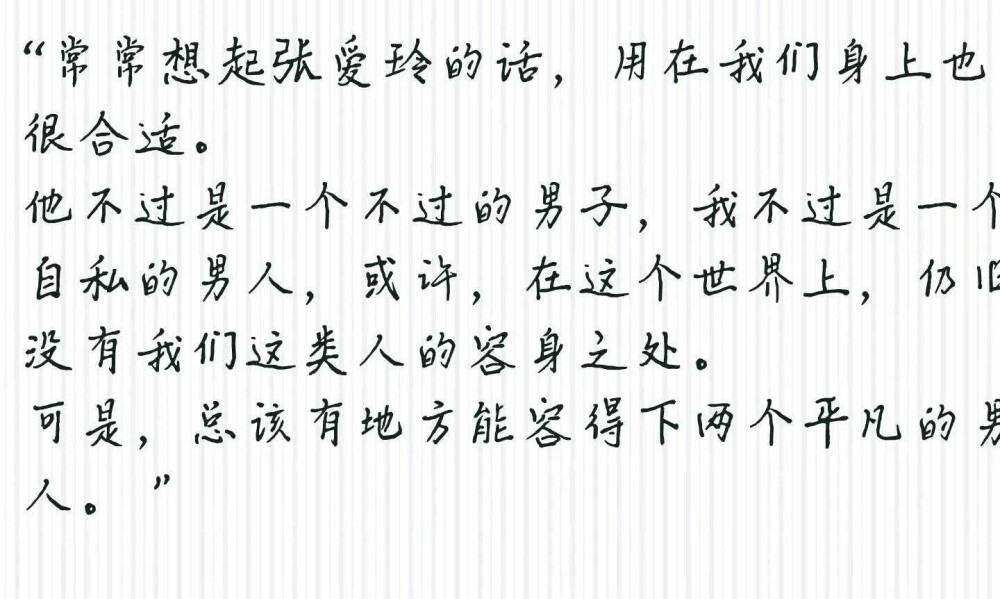 “常常想起张爱玲的话，用在我们身上也
很合适。
他不过是一个不过的男子，我不过是一个
自私的男人，或许，在这个世界上，仍旧
没有我们这类人的容身之处。
可是，总该有地方能容得下两个平凡的男
人。”